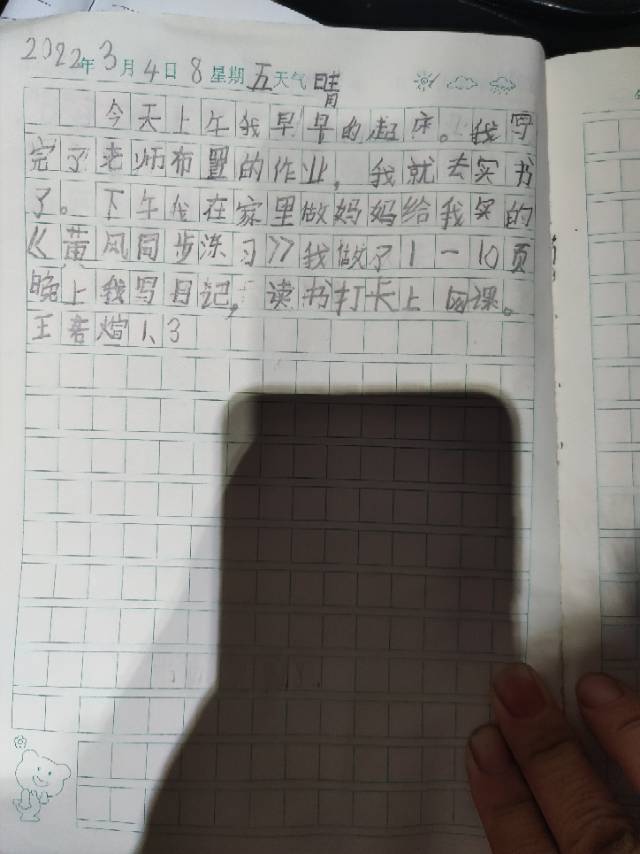 2022年3月4日8星期五天气晴
今天上午我早早的起床。我写
完了老师布置的作业，我就去买书
了。下午我在家里做妈妈给我买的
《黄风同步练习》我做了1一10页
晚上我写日记，读书打卡上网课。
王若煊1、3